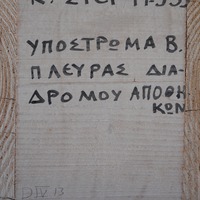 ΥΠΟΣΤΡΩΜΑ Β.
ΠΛΕΥΡΑΣ ΔΙΑ-
ΔΡΟΜΟΥ ΑΠΟΘΗ
ΚΩΝ